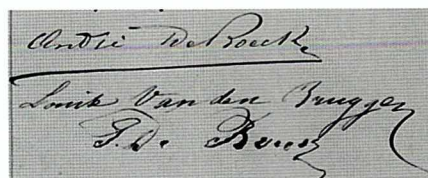 André DeRoeck
Louis Van den Bruggen
De